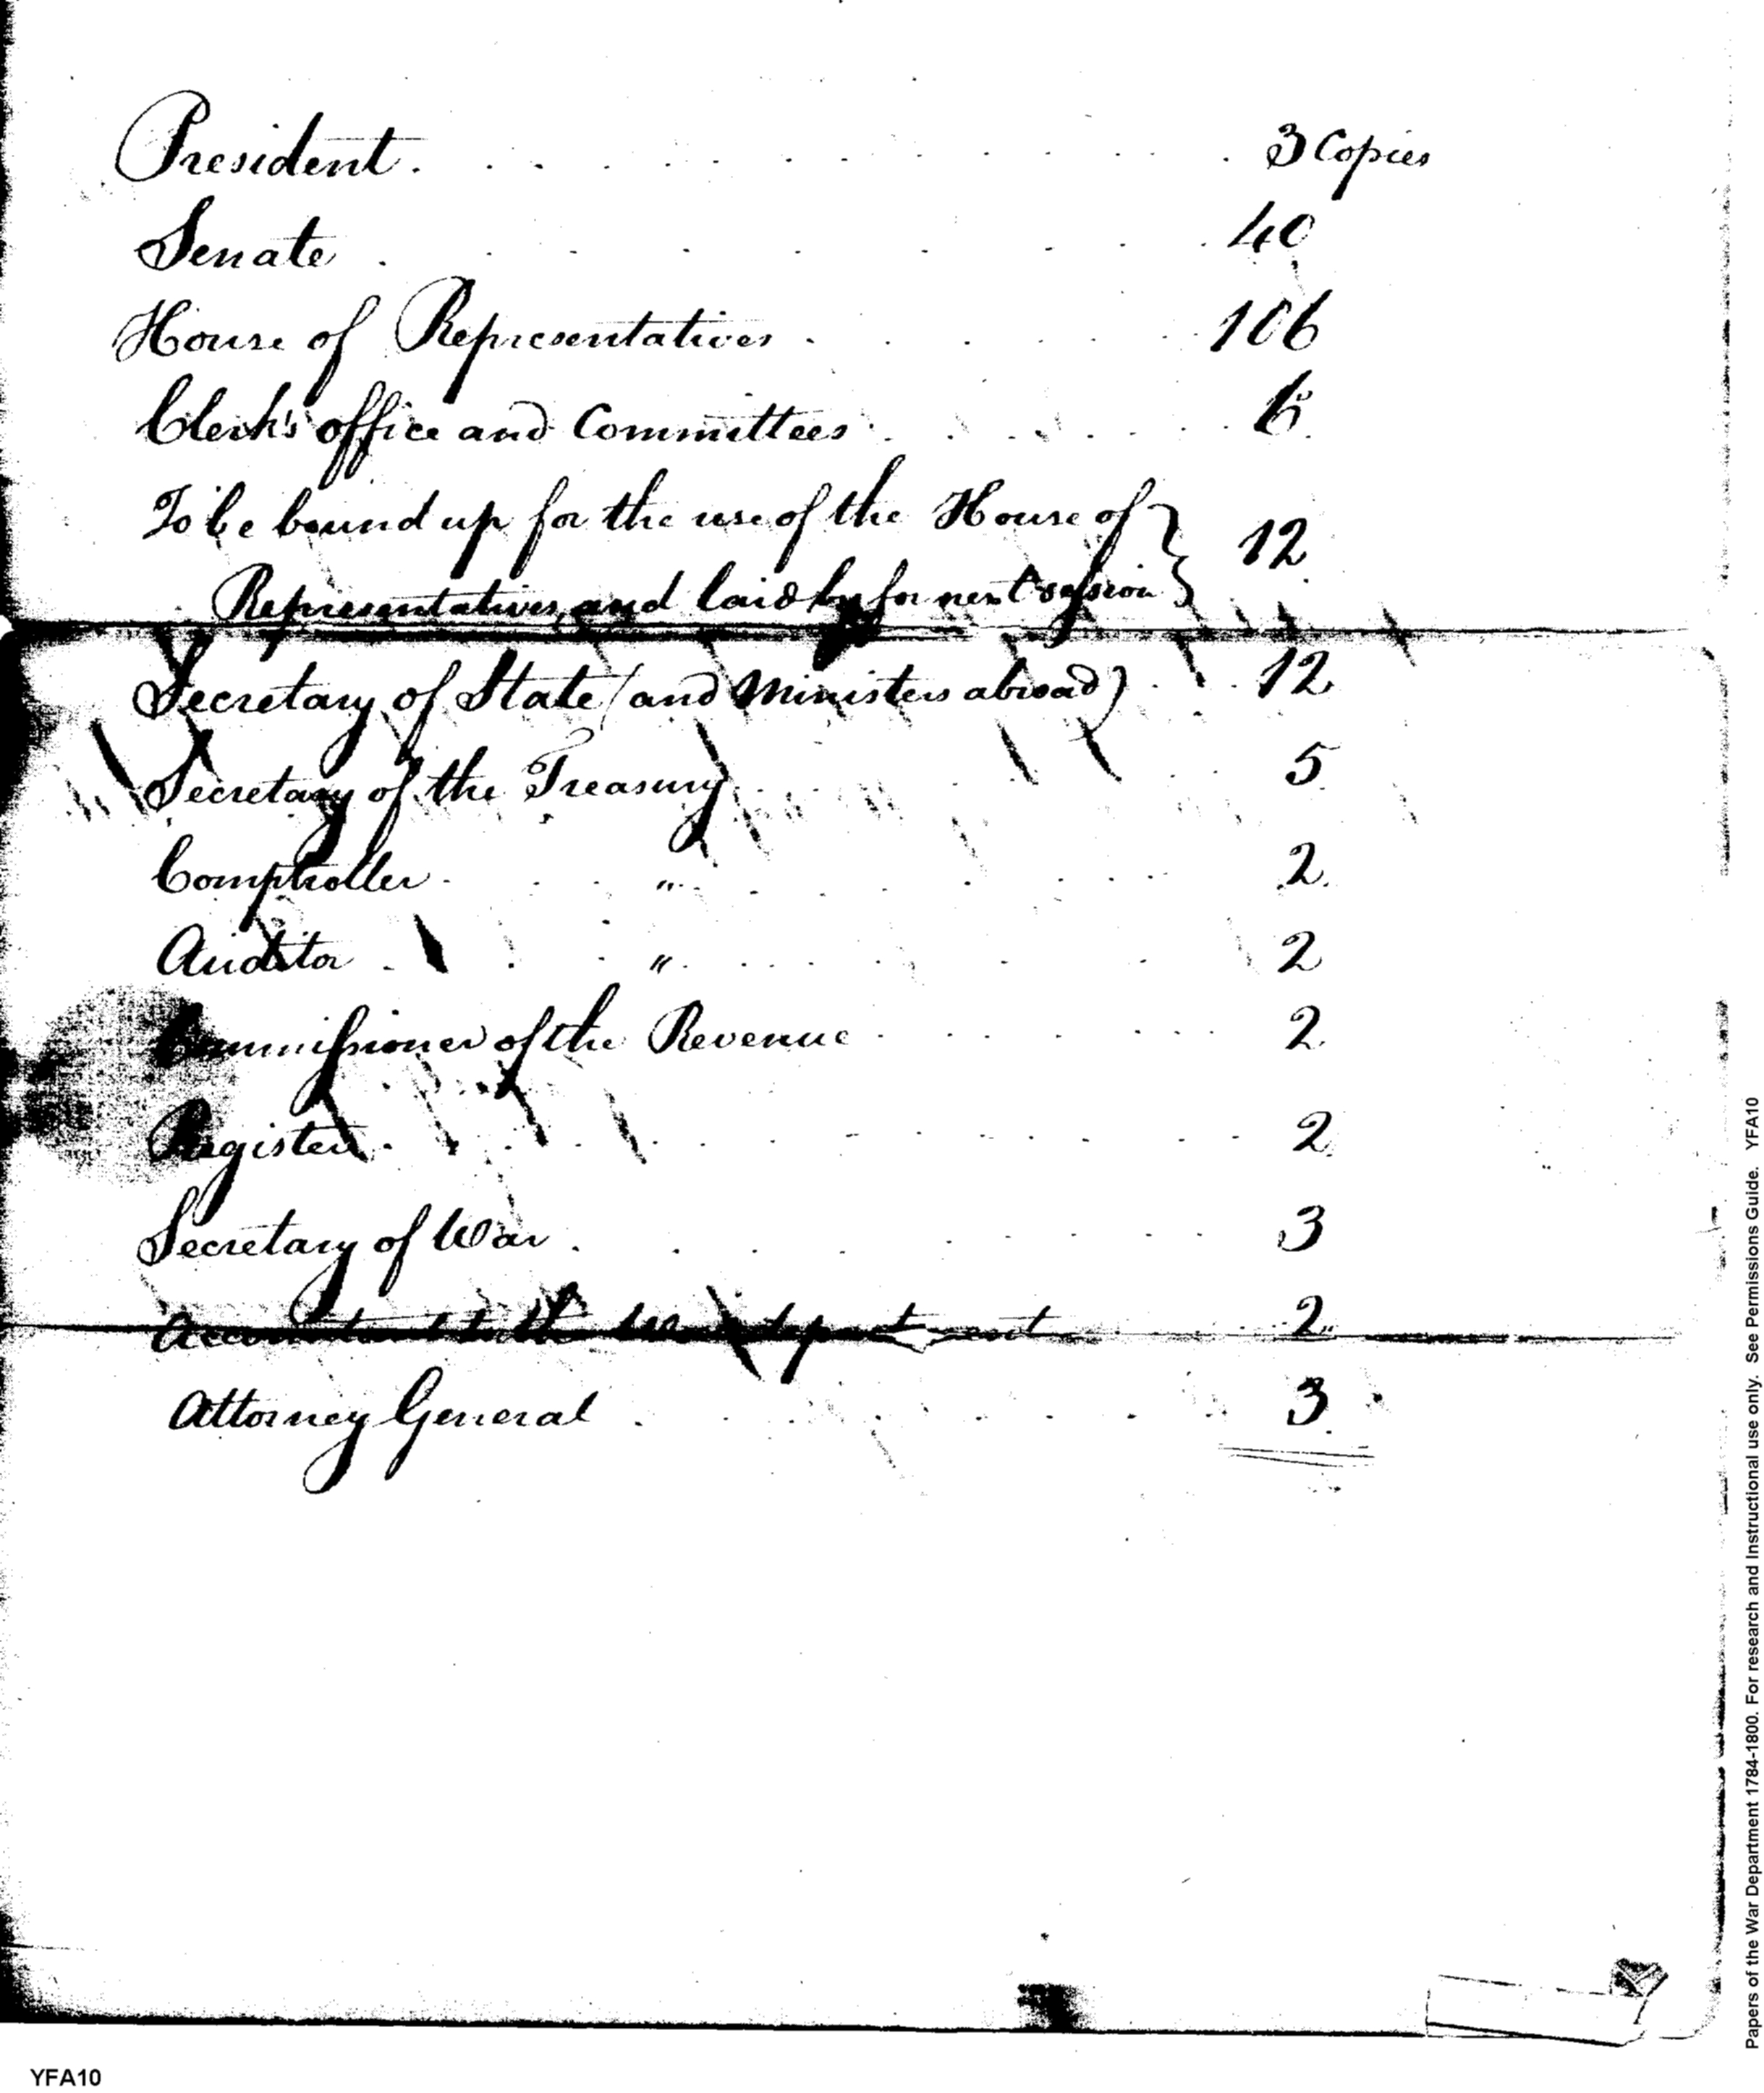 President . . . . . . . . . . . 3 Copies
Senate . . . . . . . . . . 40
House of Representatives . . . . . . 106
Clerk's office and Committees . . . . . . 6
To be bound up for the use of the House of } 12
Representatives, and laid by for next session }
Secretary of State (and Ministers abroad) . . . 12
Secretary of the Treasury . . . . . 5
Comptroller . . . " . . . . . . 2
Auditor . . . " . . . . . . 2
Commissioner of the Revenue . . . . . . 2
Register . . . . . . . . . . 2
Secretary of War . . . . . . . . 3
Accountant to the War department . . . 2
Attorney General . . . . . . . . 3
YFA10
Papers of the War Department 1784-1800. For research and Instructional use only. See Permissions Guide. YFA10